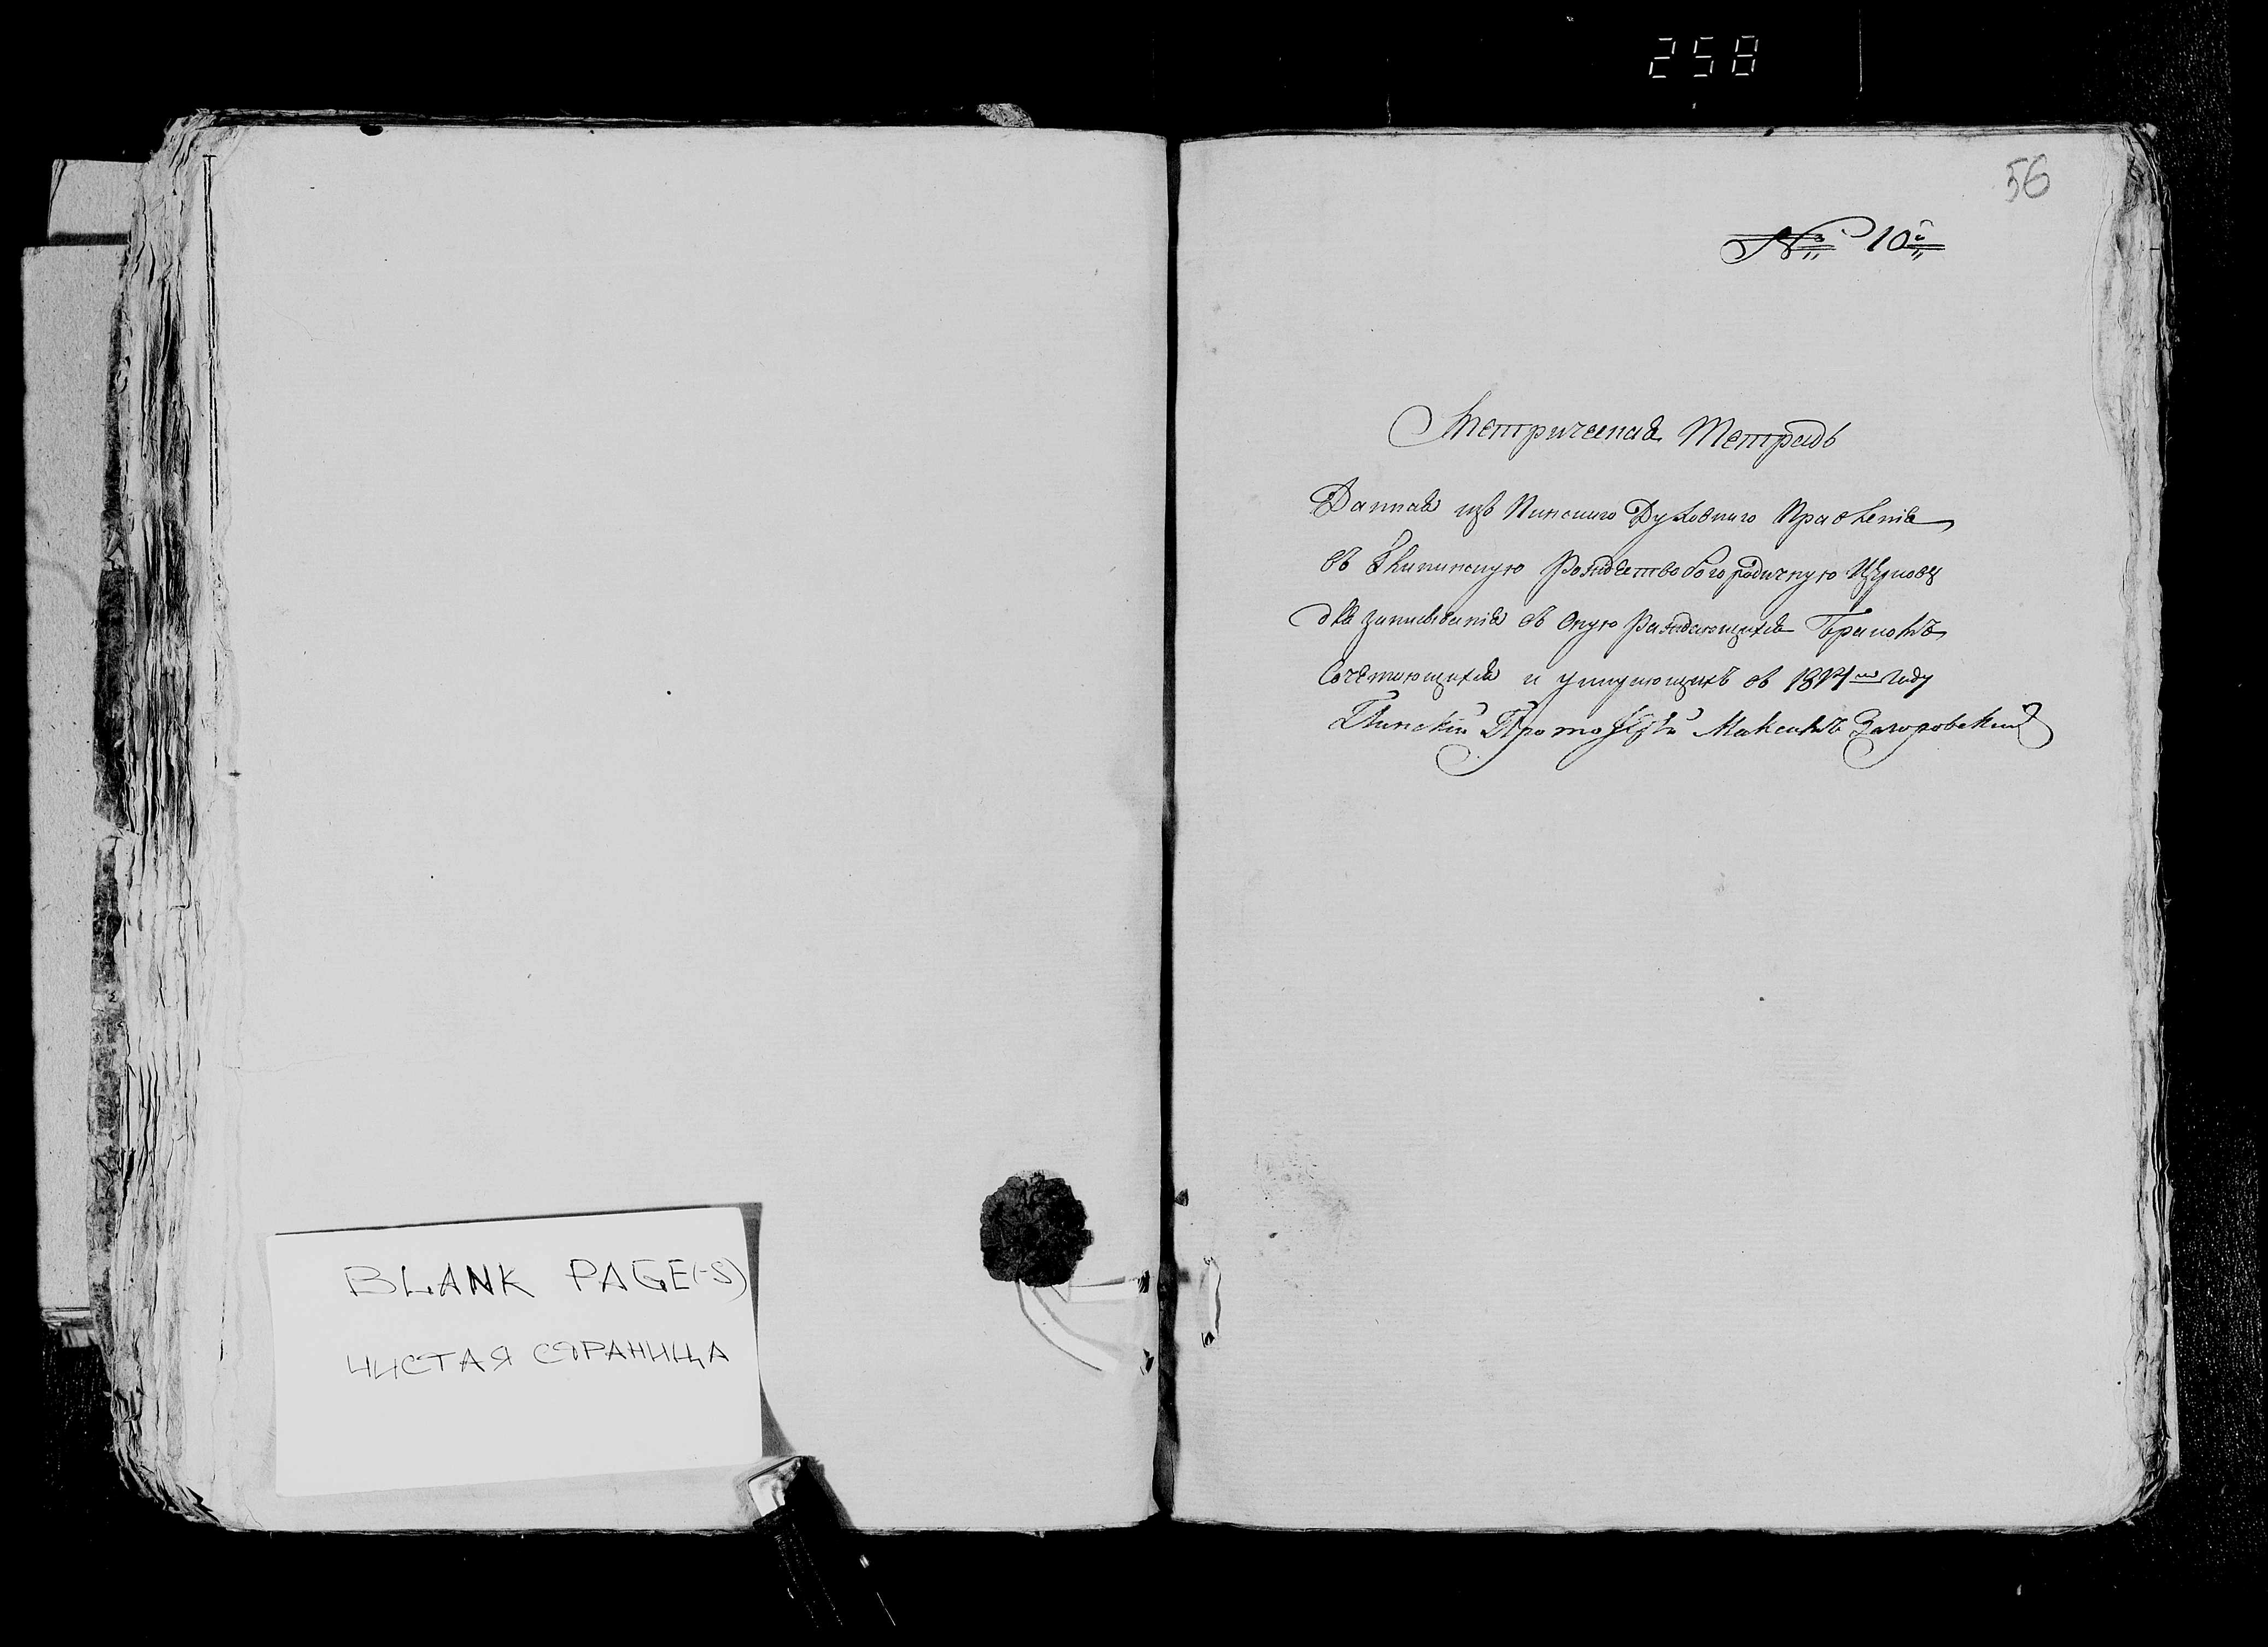 258
56
№ 10й
Метрическая Тетрадь
Данная изъ Пинскаго Духовнаго Правленія
въ Рождествобогородичную Церковь
для записыванія въ оную Раждающихся Бракомъ
Сочетающихся и умирающихъ въ году
Пинскій Максимъ Загоровскій
BLANK PAGE(-S)
ЧИСТАЯ СТРАНИЦА